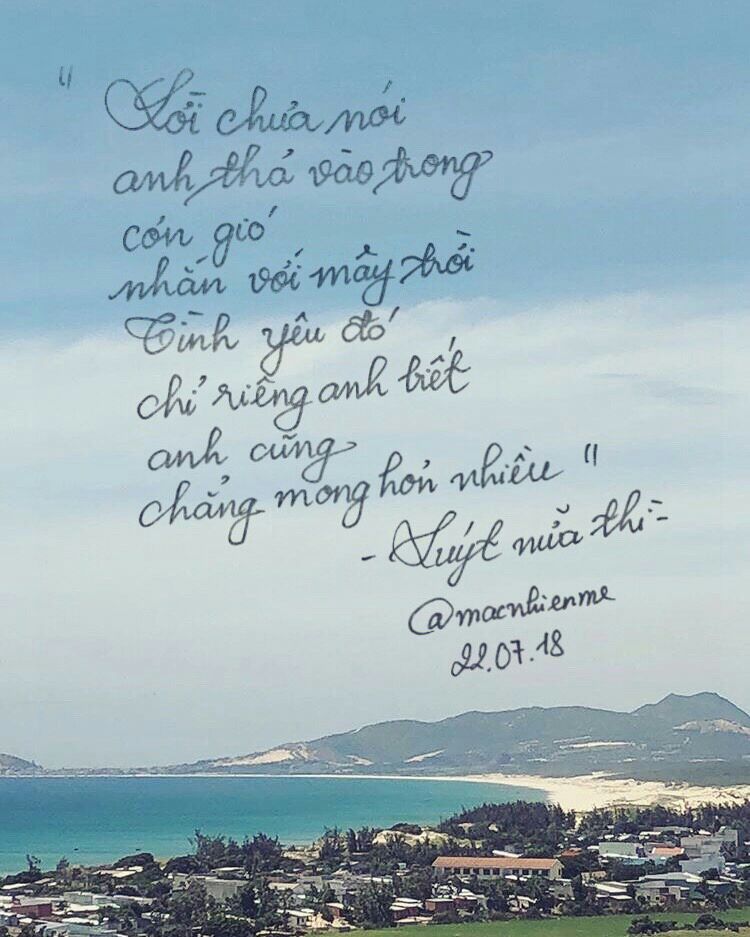 "Lời chưa nói
anh thả vào trong
cơn gió
nhắn với mây trời
Tình yêu đó
chỉ riêng anh biết
anh cũng
chẳng mong hơn nhiều"
- Suýt nữa thì -
@macnhienme
22.07.18